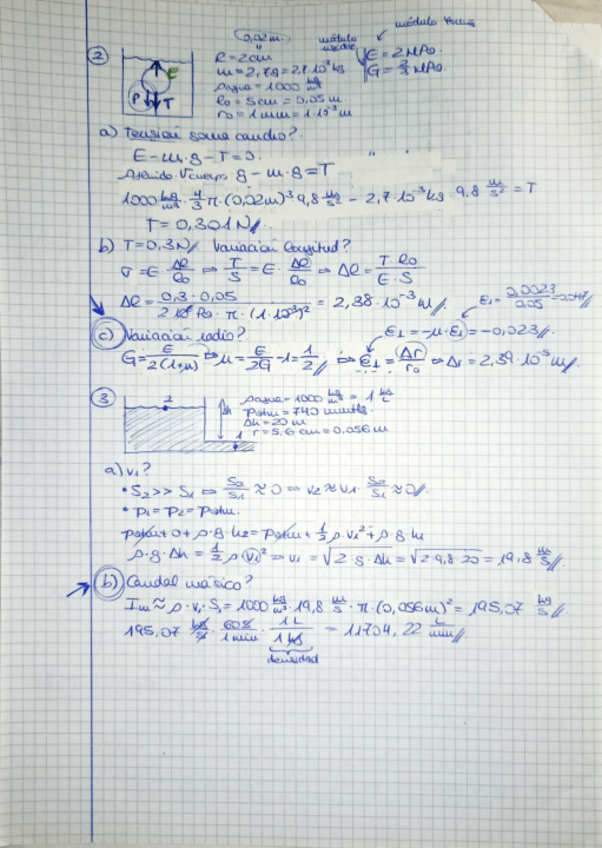 módulo Young
0,02m.
módulo
② R = 2cm E = 2 MPa.
m = 2,7g = 2,7·10⁻³ kg G = 2/3 MPa.
ρagua = 1000 kg/m³
E
P T
l₀ = 5cm = 0,05 m.
r₀ = 1mm = 1·10⁻³ m
a) Tensión soma caucho?
E - m·g - T = 0.
g - m·g = T
1000 kg/m³ · 4/3 π·(0,02m)³ 9,8 m/s² - 2,7·10⁻³ kg · 9,8 m/s² = T
T = 0,301 N//.
b) T = 0,3N//. Variación longitud?
σ = E · Δl/l₀ ⇒ T/S = E · Δl/l₀ ⇒ Δl = T·l₀/E·S
Δl = 0,3·0,05/2·10⁶ Pa·π·(1·10⁻³)² = 2,38·10⁻³ m//. ε₁ = 0,0023/0,05 = 0,047//
c) Variación radio? ε⊥ = -μ·ε₁ = -0,023//.
G = E/2(1+μ) ⇒ μ = E/2G - 1 = 1/2// ⇒ ε⊥ = Δr/r₀ ⇒ Δr = 2,39·10⁻⁵ m//.
③ ρagua = 1000 kg/m³ = 1 kg/L
2 Patm = 740 mmHg
Δh = 20 m
r = 5,6 cm = 0,056m
1
a) v₁?
• S₂ >> S₁ ⇒ S₂/S₁ ≈ 0 ⇒ v₂ ≈ v₁ · S₂/S₁ ≈ 0//.
• P₁ = P₂ = Patm.
Patm + 0 + ρ·g·h₂ = Patm + 1/2 ρ·v₁² + ρ·g·h₁
ρ·g·Δh = 1/2 ρ v₁² ⇒ v₁ = √2·g·Δh = √2·9,8·20 = 19,8 m/s//.
b) Caudal másico?
Im ≈ ρ·v₁·S₁ = 1000 kg/m³ · 19,8 m/s · π·(0,056m)² = 195,07 kg/s//.
195,07 kg/s · 60s/1min · 1L/1kg = 11704,22 L/min//
densidad